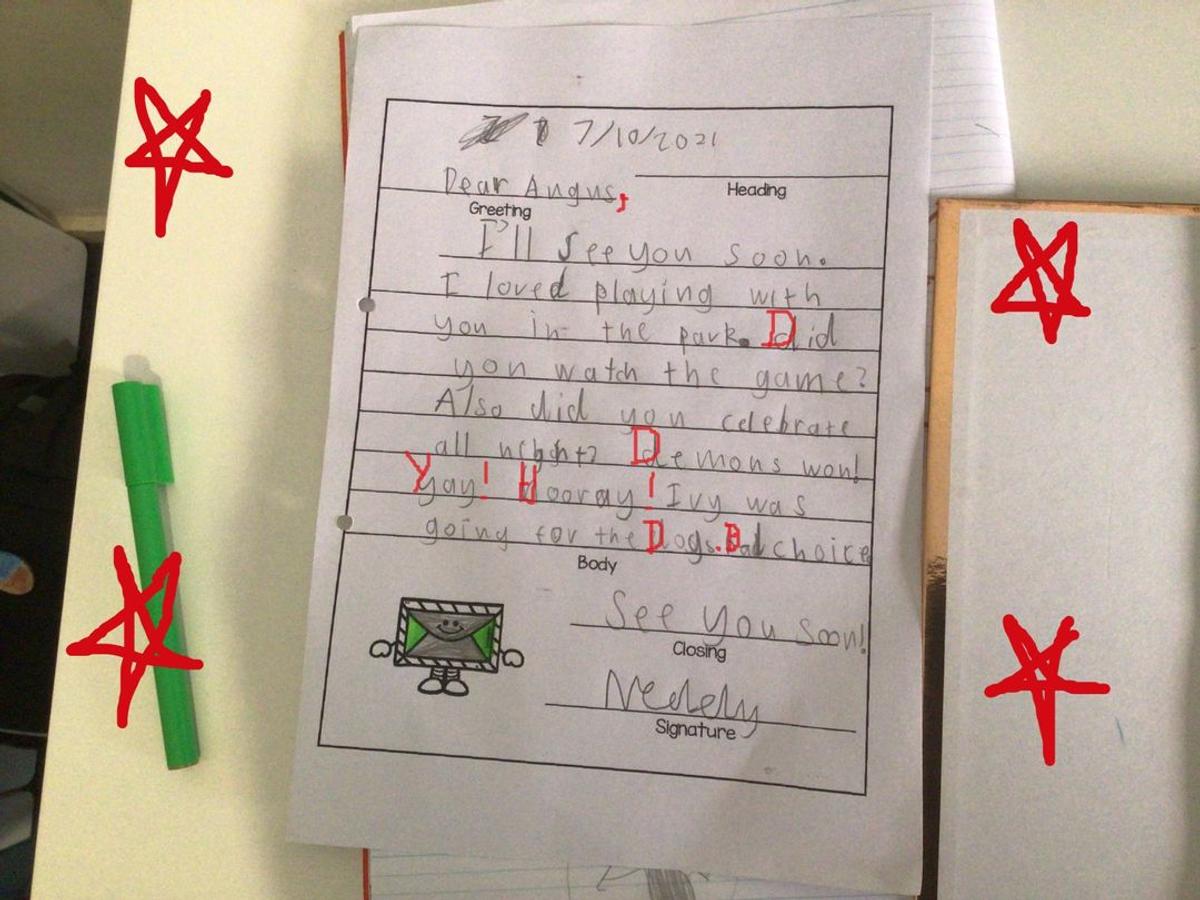 7/10/2021
Heading
Dear Angus,
Greeting
I'll see you soon.
I loved playing with
you in the park. Did
you watch the game?
Also did you celebrate
all night? Demons won!
Yay! Hooray! Ivy was
going for the Dogs. Bad choice
Body
See you soon!
Closing
Signature